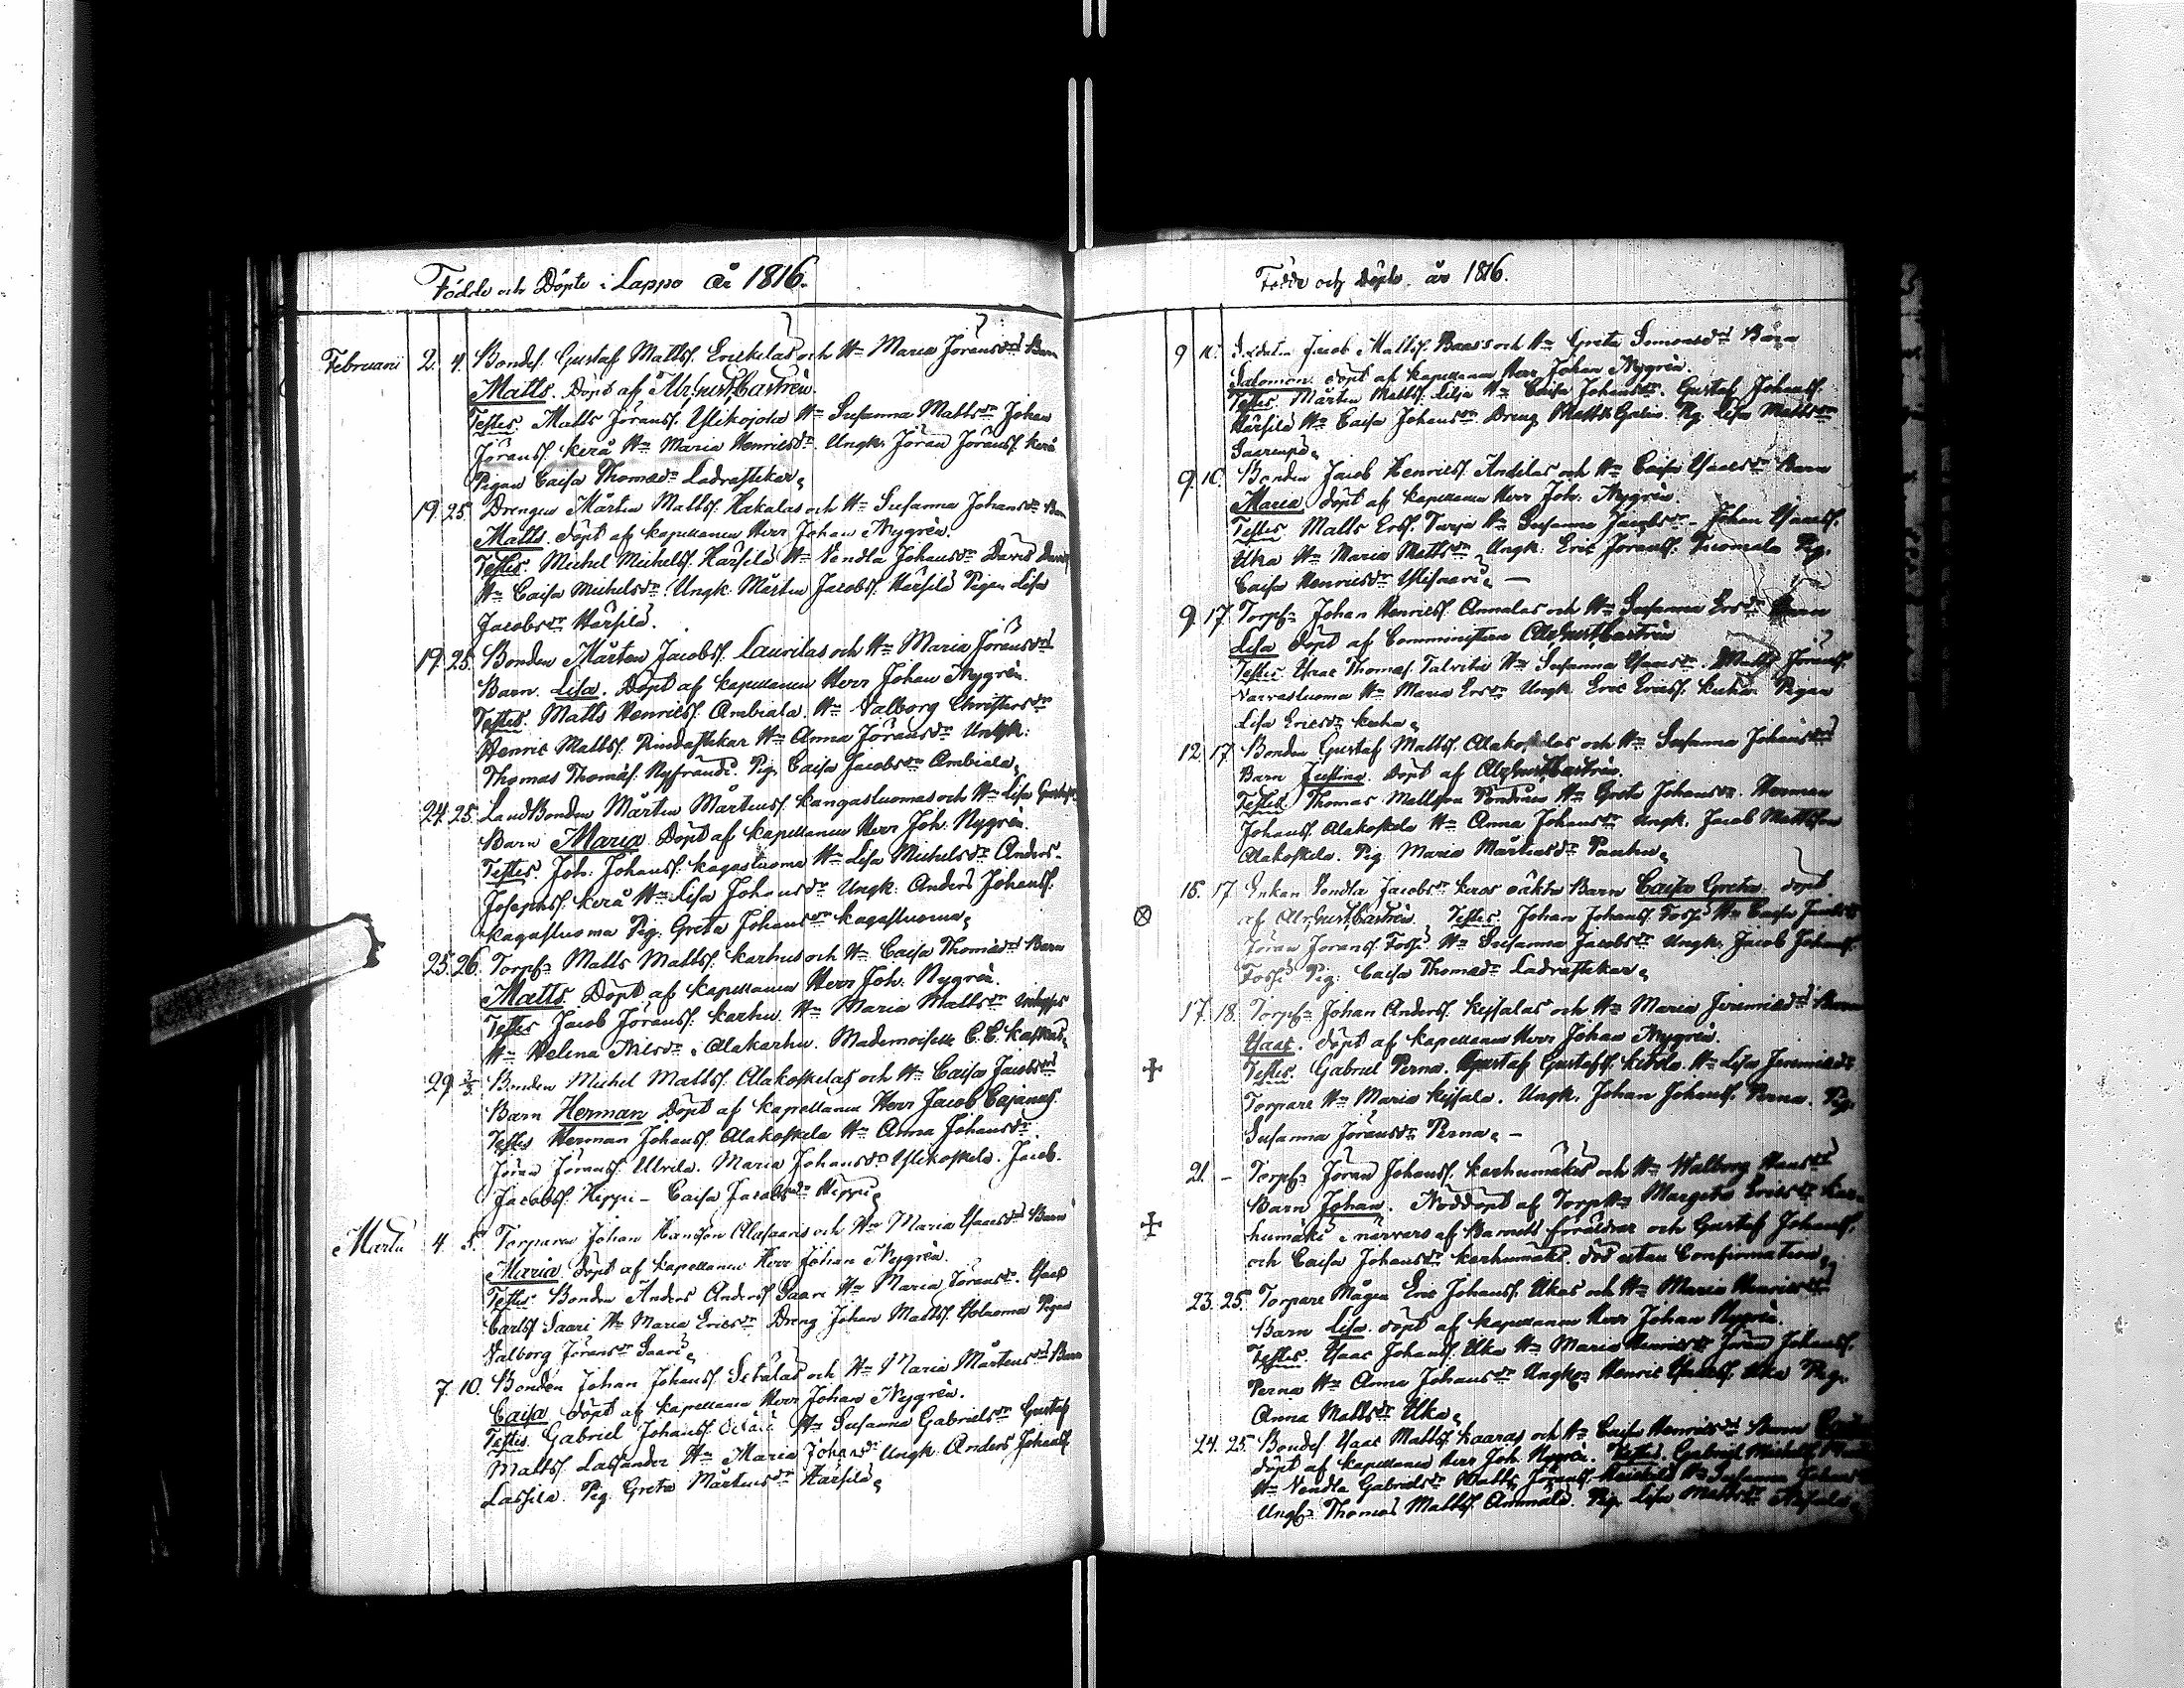 Födde och Döpte i Lappo år 1816.
Februarii 2. 4. Bondes. Gustaf Mattss. Erickilas och Hu Maria Jöransdrs Barn
Matts. Döpt af Alr. Gust. Castrén.
Testes. Matts Jöranss. Ylikojola Hu Susanna Mattsdr Johan
Jöranss. Kerå Hu Maria Henricsdr. Ungk. Jöran Jöranss. Kerå
Pigan Caisa Thomasdr Ladraskekar
19. 25. Drengen Mårten Mattss. Hakalas och Hu Susanna Johansdrs Barn
Matts. döpt af Kapellanen Herr Johan Nygrén.
Testes. Michel Michelss. Härsilä Hu Vendla Johansdr David
Hu Caisa Michelsdr. Ungk. Mårten Jacobss. Härsilä Pigan Lisa
Jacobsdr Härsilä.
19. 25. Bonden Mårten Jacobss. Laurilas och Hu Maria Jöransdrs
Barn. Lisa. Döpt af Kapellanen Herr Johan Nygrén.
Testes. Matts Henricss. Ambiala. Hu Valborg Christersdr
Henric Mattss. Hu Anna Jöransdr Ungk.
Thomas Thomass. Pig. Caisa Jacobsdr Ambiala
24. 25. LandBonden Mårten Mårtenss. Kangasluomas och Hu Lisa
Barn Maria Döpt af Kapellanen Herr Joh. Nygrén.
Testes. Joh. Johanss. Kagasluoma Hu Lisa Michelsdr Anders
Josephss. Kerå Hu Lisa Johansdr Ungk. Anders Johanss.
Kagasluoma Pig. Greta Johansdr Kagasluoma
25. 26. Torp. Matts Mattss. Karhus och Hu Caisa Thomasdrs Barn
Matts. Döpt af Kapellanen Herr Joh. Nygrén.
Testes Jacob Jöranss. Karhu Hu Maria Mattsdr
Hu Helena Nilsdr Alakarhu. Mademoiselle C. C.
29. 3/3 Bonden Michel Mattss. Alakoskelas och Hu Caisa Jacobsdrs
Barn Herman Döpt af Kapellanen Herr Jacob Cajanus
Testes Herman Johanss. Alakoskela Hu Anna Johansdr.
Jöran Jöranss. Maria Johansdr Ylikoskela. Jacob
Jacobss. Hippi - Caisa Jacobsdr Hippi
Martii 4. 5. Torparen Johan Alasaaris och Hu Maria Isaacsdrs Barn
Maria. Döpt af Kapellanen Herr Johan Nygrén.
Testes. Bonden Anders Anderss Saari Hu Maria Jöransdr. Isaac
Carlss Saari Hu Maria Ericsdr Dreng Johan Mattss. Pigan
Valborg Jöransdr Saari
7. 10. Bonden Johan Johanss. Setälas och Hu Maria Mårtensdrs Barn
Caisa Döpt af Kapellanen Herr Johan Nygrén.
Testes. Gabriel Johanss. Hu Susanna Gabrielsdr Gustaf
Mattss. Lassander Hu Maria Johansdr Ungk. Anders Johanss.
Lassila. Pig. Greta Mårtensdr Härsilä
Födde och Döpte år 1816.
9 10. Soldaten Jacob Mattss. Baass och Hu Greta Simonsdrs Barn
Salomon. döpt af Kapellanen Herr Johan Nygrén.
Testes. Mårten Mattss. Lilja Hu Caisa Johansdr. Gustaf Johanss.
Härsilä Hu Caisa Johansdr Dreng Matts Pig. Lisa Mattsdr
Saarenpä
9. 10. Bonden Jacob Henricss. Andilas och Hu Caisa Isaacsdr Barn
Maria döpt af Kapellanen Herr Joh. Nygrén.
Testes Matts Erss. Hu Susanna Jacobsdr - Johan Isaacss.
Uka Hu Maria Mattsdr Ungk. Eric Jöranss. Tuomala Pig.
Caisa Henricsdr Ylisaari -
9. 17. Torp. Johan Henricss. Annalas och Hu Susanna Ersdr Barn
Lisa Döpt af Comministern Alr. Gust. Castrén
Testes Isaac Thomass. Talvitie Hu Susanna Isaacsdr. Matts Jöranss.
Varrasluoma Hu Maria Ersdr Ungk. Eric Ericss. Kuha. Pigan
Lisa Ericsdr Kuha
12. 17. Bonden Gustaf Mattss. Alakoskelas och Hu Susanna Johansdrs
Barn Justina. Döpt af Alr. Gust. Castrén.
Testes Thomas Mattsson Hu Greta Johansdr. Herman
Johanss. Alakoskela Hu Anna Johansdr Ungk. Jacob Mattsson
Alakoskela. Pig. Maria Mårtensdr
15. 17. Enkan Vendla Jacobsdr Keras oäkta Barn Caisa Greta. döpt
af Alr. Gust. Castrén. Testes. Johan Johanss. Hu Caisa
Jöran Jöranss. Hu Susanna Jacobsdr Ungk. Jacob Johanss.
Pig. Caisa Thomasdr Ladraskekar
17. 18. Torp. Johan Anderss. Kissalas och Hu Maria Jeremiasdrs Barn
Isaac. döpt af Kapellanen Herr Johan Nygrén.
Testes. Gabriel Perna. Gustaf Gustafss. Hu Lisa Jeremiasdr
Torpare Hu Maria Kissala. Ungk. Johan Johanss. Perna. Pig.
Susanna Jöransdr Perna -
21. - Torp. Jöran Johanss. Karhumäkis och Hu Walborg Hansdrs
Barn Johan. Nöddöpt af Torp. Hu Margeta Ericsdr Kar-
humäki i närvaro af Barnets föräldrar och Gustaf Johanss.
och Caisa Johansdr Karhumäki död utan Confirmation
23. 25. Torpare Mågen Eric Johanss. Ukas och Hu Maria Henricsdrs
Barn Lisa. döpt af Kapellanen Herr Johan Nygrén.
Testes. Isaac Johanss. Uka Hu Maria Henricsdr Jöran Johanss.
Perna Hu Anna Johansdr Ungk. Henric Isaacss. Uka Pig.
Anna Mattsdr Uka
24. 25. Bondes. Isaac Mattss. Kaaras och Hu Caisa Henricsdrs Barn
döpt af Kapellanen Herr Joh. Nygrén. Testes. Gabriel Michelss.
Hu Vendla Gabrielsdr Matts Jöranss. Hu Susanna
Ungk. Thomas Mattss. Ammälä. Pig. Lisa Mattsdr